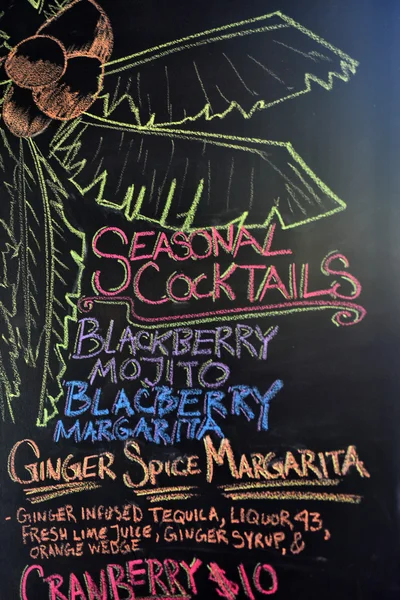 SEASONAL
COCKTAILS
BLACKBERRY
MOJITO
BLACBERRY
MARGARITA
GINGER SPICE MARGARITA
- GINGER INFUSED TEQUILA, LIQUOR 43,
FRESH LIME JUICE, GINGER SYRUP, &
ORANGE WEDGE
CRANBERRY $10